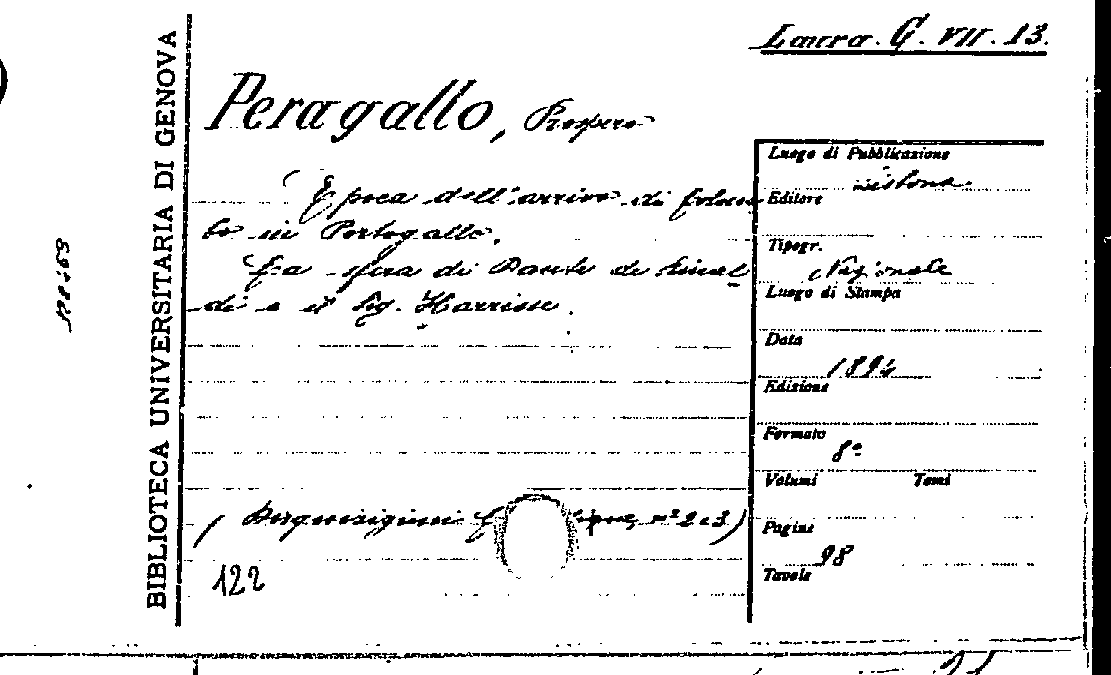 Laura. G. VII. 13.
BIBLIOTECA UNIVERSITARIA DI GENOVA
Peragallo, Prospero
Epoca dell'arrivo di Colom
bo in Portogallo.
La sfera di Dante di Rinal
di e il Sig. Harrisse.
( Disquisizioni n° 2 e 3)
122
Luogo di Pubblicazione
Lisbona
Editore
Tipogr.
Nazionale
Luogo di Stampa
Data
1894
Edizione
Formato
8°
Volumi Tomi
Pagine
98
Tavole